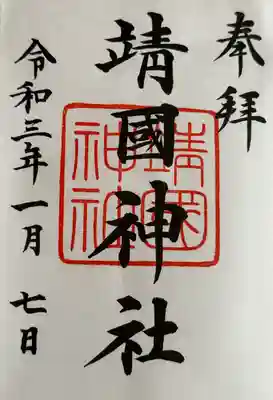 奉拝
靖國神社
靖国神社
令和三年一月七日